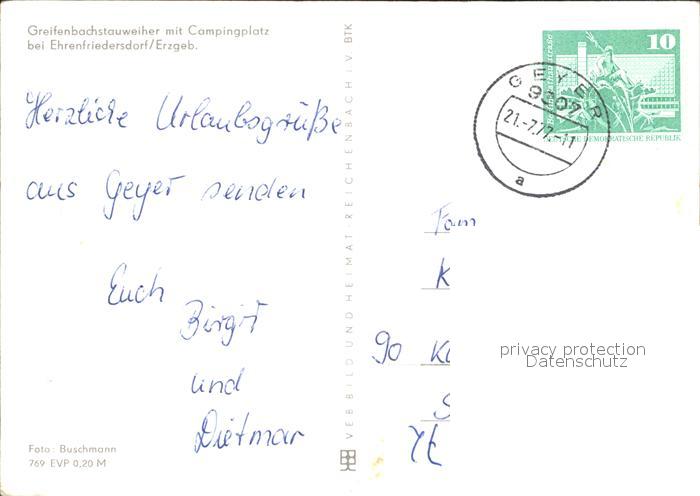 Greifenbachstauweiher mit Campingplatz
bei Ehrenfriedersdorf/Erzgeb.
Herzliche Urlaubsgrüße
aus Geyer senden
Euch
Birgit
und
Dietmar
Foto: Buschmann
769 EVP 0,20 M
VEB BILD UND HEIMAT REICHENBACH i. V. BTK
10
GEYER
21.-7.77.-11
a
DEUTSCHE DEMOKRATISCHE REPUBLIK
Fam
K
90
privacy protection
Datenschutz